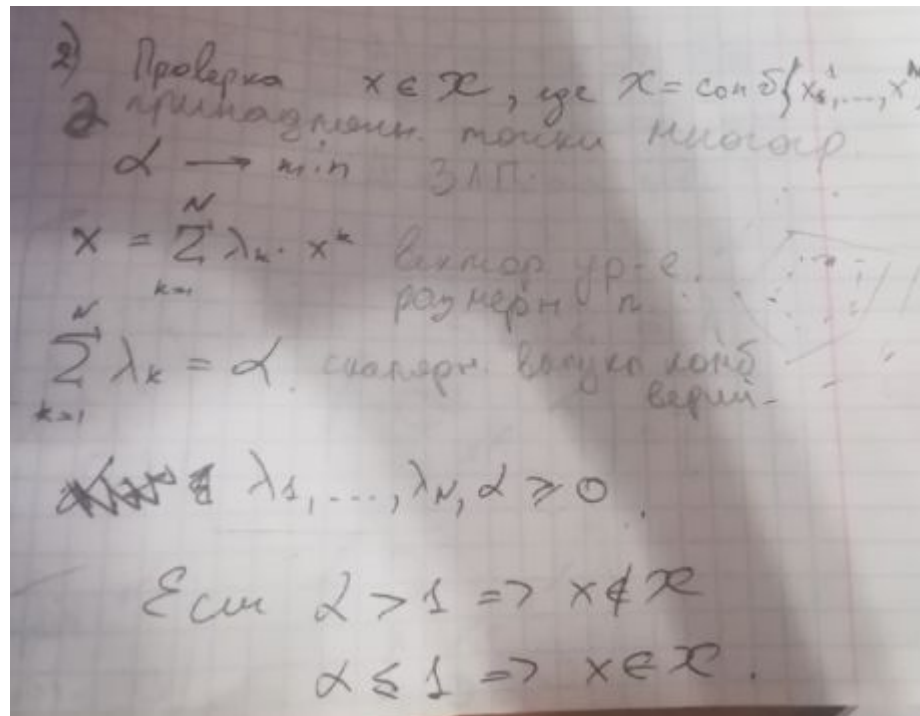 2) Проверка x ∈ X, где X = conv{x^1,...,x^N
принадлежн. точки многогр
α → min ЗЛП.
x = Σ_{k=1}^{N} λ_k · x^k вектор. ур-е.
размерн n.
Σ_{k=1}^{N} λ_k = α. скалярн. выпукл комб
λ_1, ..., λ_N, α ≥ 0.
Если α > 1 => x ∉ X
α ≤ 1 => x ∈ X.